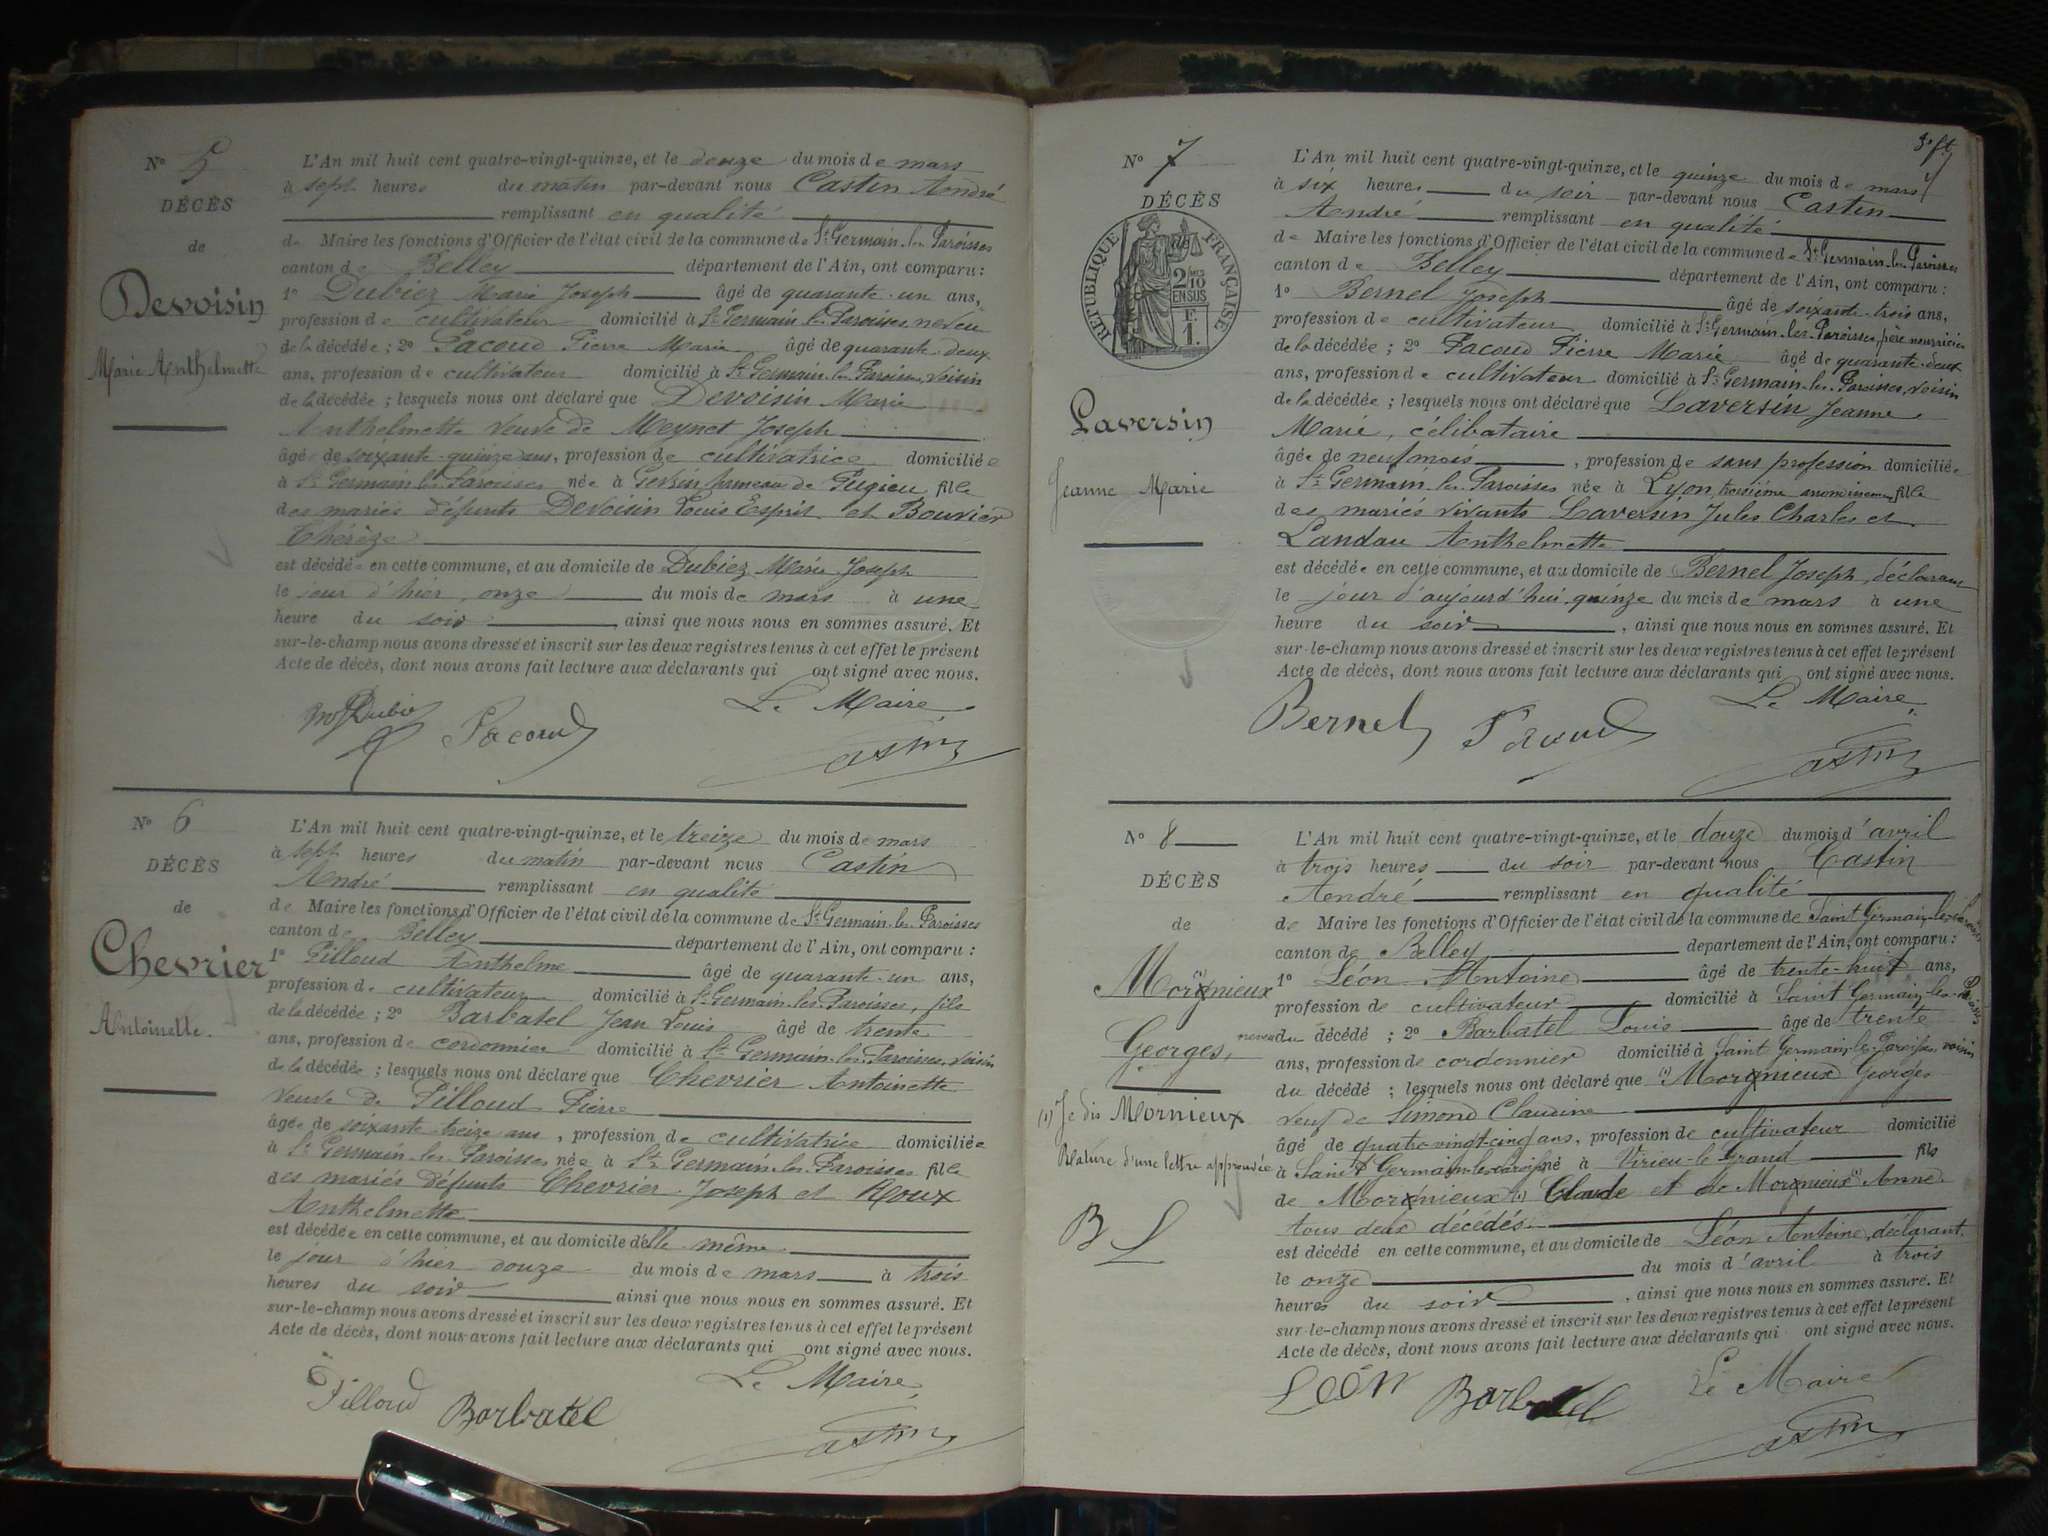 N° 5
DÉCÈS
de
Devoisin
Marie Anthelmette
L'An mil huit cent quatre-vingt-quinze, et le douze du mois de mars
à sept heures du matin par-devant nous Castin André
remplissant en qualité
de Maire les fonctions d'Officier de l'état civil de la commune de St Germain-les-Paroisses
canton de Belley département de l'Ain, ont comparu :
1° Dubiez Marie Joseph âgé de quarante-un ans,
profession de cultivateur domicilié à St Germain-les-Paroisses, neveu
de la décédée ; 2° Pacoud Pierre Marie âgé de quarante-deux
ans, profession de cultivateur domicilié à St Germain-les-Paroisses, voisin
de la décédée ; lesquels nous ont déclaré que Devoisin Marie
Anthelmette veuve de Meynet Joseph
âgée de soixante-quinze ans, profession de cultivatrice domiciliée
à St Germain-les-Paroisses née à hameau de Pugieu fille
des mariés défunts Devoisin Louis Esprit et Bouvier
Thérèze
est décédée en cette commune, et au domicile de Dubiez Marie Joseph
le jour d'hier, onze du mois de mars à une
heure du soir, ainsi que nous nous en sommes assuré. Et
sur-le-champ nous avons dressé et inscrit sur les deux registres tenus à cet effet le présent
Acte de décès, dont nous avons fait lecture aux déclarants qui ont signé avec nous.
Le Maire,
Dubiez Pacoud Castin
N° 6
DÉCÈS
de
Chevrier
Antoinette.
L'An mil huit cent quatre-vingt-quinze, et le treize du mois de mars
à sept heures du matin par-devant nous Castin
André remplissant en qualité
de Maire les fonctions d'Officier de l'état civil de la commune de St Germain-les-Paroisses
canton de Belley département de l'Ain, ont comparu :
1° Pilloud Anthelme âgé de quarante-un ans,
profession de cultivateur domicilié à St Germain-les-Paroisses, fils
de la décédée ; 2° Barbatel Jean Louis âgé de trente
ans, profession de cordonnier domicilié à St Germain-les-Paroisses, voisin
de la décédée ; lesquels nous ont déclaré que Chevrier Antoinette
veuve de Pilloud Pierre
âgée de soixante-treize ans, profession de cultivatrice domiciliée
à St Germain-les-Paroisses née à St Germain-les-Paroisses fille
des mariés défunts Chevrier Joseph et Roux
Anthelmette
est décédée en cette commune, et au domicile d'elle-même
le jour d'hier douze du mois de mars à trois
heures du soir ainsi que nous nous en sommes assuré. Et
sur-le-champ nous avons dressé et inscrit sur les deux registres tenus à cet effet le présent
Acte de décès, dont nous avons fait lecture aux déclarants qui ont signé avec nous.
Le Maire,
Pilloud Barbatel Castin
N° 7
DÉCÈS
de
RÉPUBLIQUE FRANÇAISE
2/10 EN SUS
F. 1.
Laversin
Jeanne Marie
L'An mil huit cent quatre-vingt-quinze, et le quinze du mois de mars
à six heures du soir par-devant nous Castin
André remplissant en qualité
de Maire les fonctions d'Officier de l'état civil de la commune de St Germain-les-Paroisses
canton de Belley département de l'Ain, ont comparu :
1° Bernel Joseph âgé de soixante-trois ans,
profession de cultivateur domicilié à St Germain-les-Paroisses, père nourricier
de la décédée ; 2° Pacoud Pierre Marie âgé de quarante-deux
ans, profession de cultivateur domicilié à St Germain-les-Paroisses, voisin
de la décédée ; lesquels nous ont déclaré que Laversin Jeanne
Marie, célibataire
âgée de neuf mois, profession de sans profession domiciliée
à St Germain-les-Paroisses née à Lyon, troisième arrondissement fille
des mariés vivants Laversin Jules Charles et
Landau Anthelmette
est décédée en cette commune, et au domicile de Bernel Joseph, déclarant
le jour d'aujourd'hui quinze du mois de mars à une
heure du soir, ainsi que nous nous en sommes assuré. Et
sur-le-champ nous avons dressé et inscrit sur les deux registres tenus à cet effet le présent
Acte de décès, dont nous avons fait lecture aux déclarants qui ont signé avec nous.
Le Maire,
Bernel Pacoud Castin
N° 8
DÉCÈS
de
Morgnieux (1)
Georges,
(1) Je dis Mornieux
Rature d'une lettre approuvée
B L
L'An mil huit cent quatre-vingt-quinze, et le douze du mois d'avril
à trois heures du soir par-devant nous Castin
André remplissant en qualité
de Maire les fonctions d'Officier de l'état civil de la commune de Saint Germain-les-Paroisses
canton de Belley département de l'Ain, ont comparu :
1° Léon Antoine âgé de trente-huit ans,
profession de cultivateur domicilié à Saint Germain-les-Paroisses
neveu du décédé ; 2° Barbatel Louis âgé de trente
ans, profession de cordonnier domicilié à Saint Germain-les-Paroisses, voisin
du décédé ; lesquels nous ont déclaré que (1) Morgnieux Georges
veuf de Simond Claudine
âgé de quatre-vingt-cinq ans, profession de cultivateur domicilié
à Saint Germain-les-Paroisses né à Virieu-le-Grand fils
de Morgnieux (1) Claude et de Morgnieux (1) Anne
tous deux décédés
est décédé en cette commune, et au domicile de Léon Antoine, déclarant
le onze du mois d'avril à trois
heures du soir, ainsi que nous nous en sommes assuré. Et
sur-le-champ nous avons dressé et inscrit sur les deux registres tenus à cet effet le présent
Acte de décès, dont nous avons fait lecture aux déclarants qui ont signé avec nous.
Le Maire
Léon Barbatel Castin